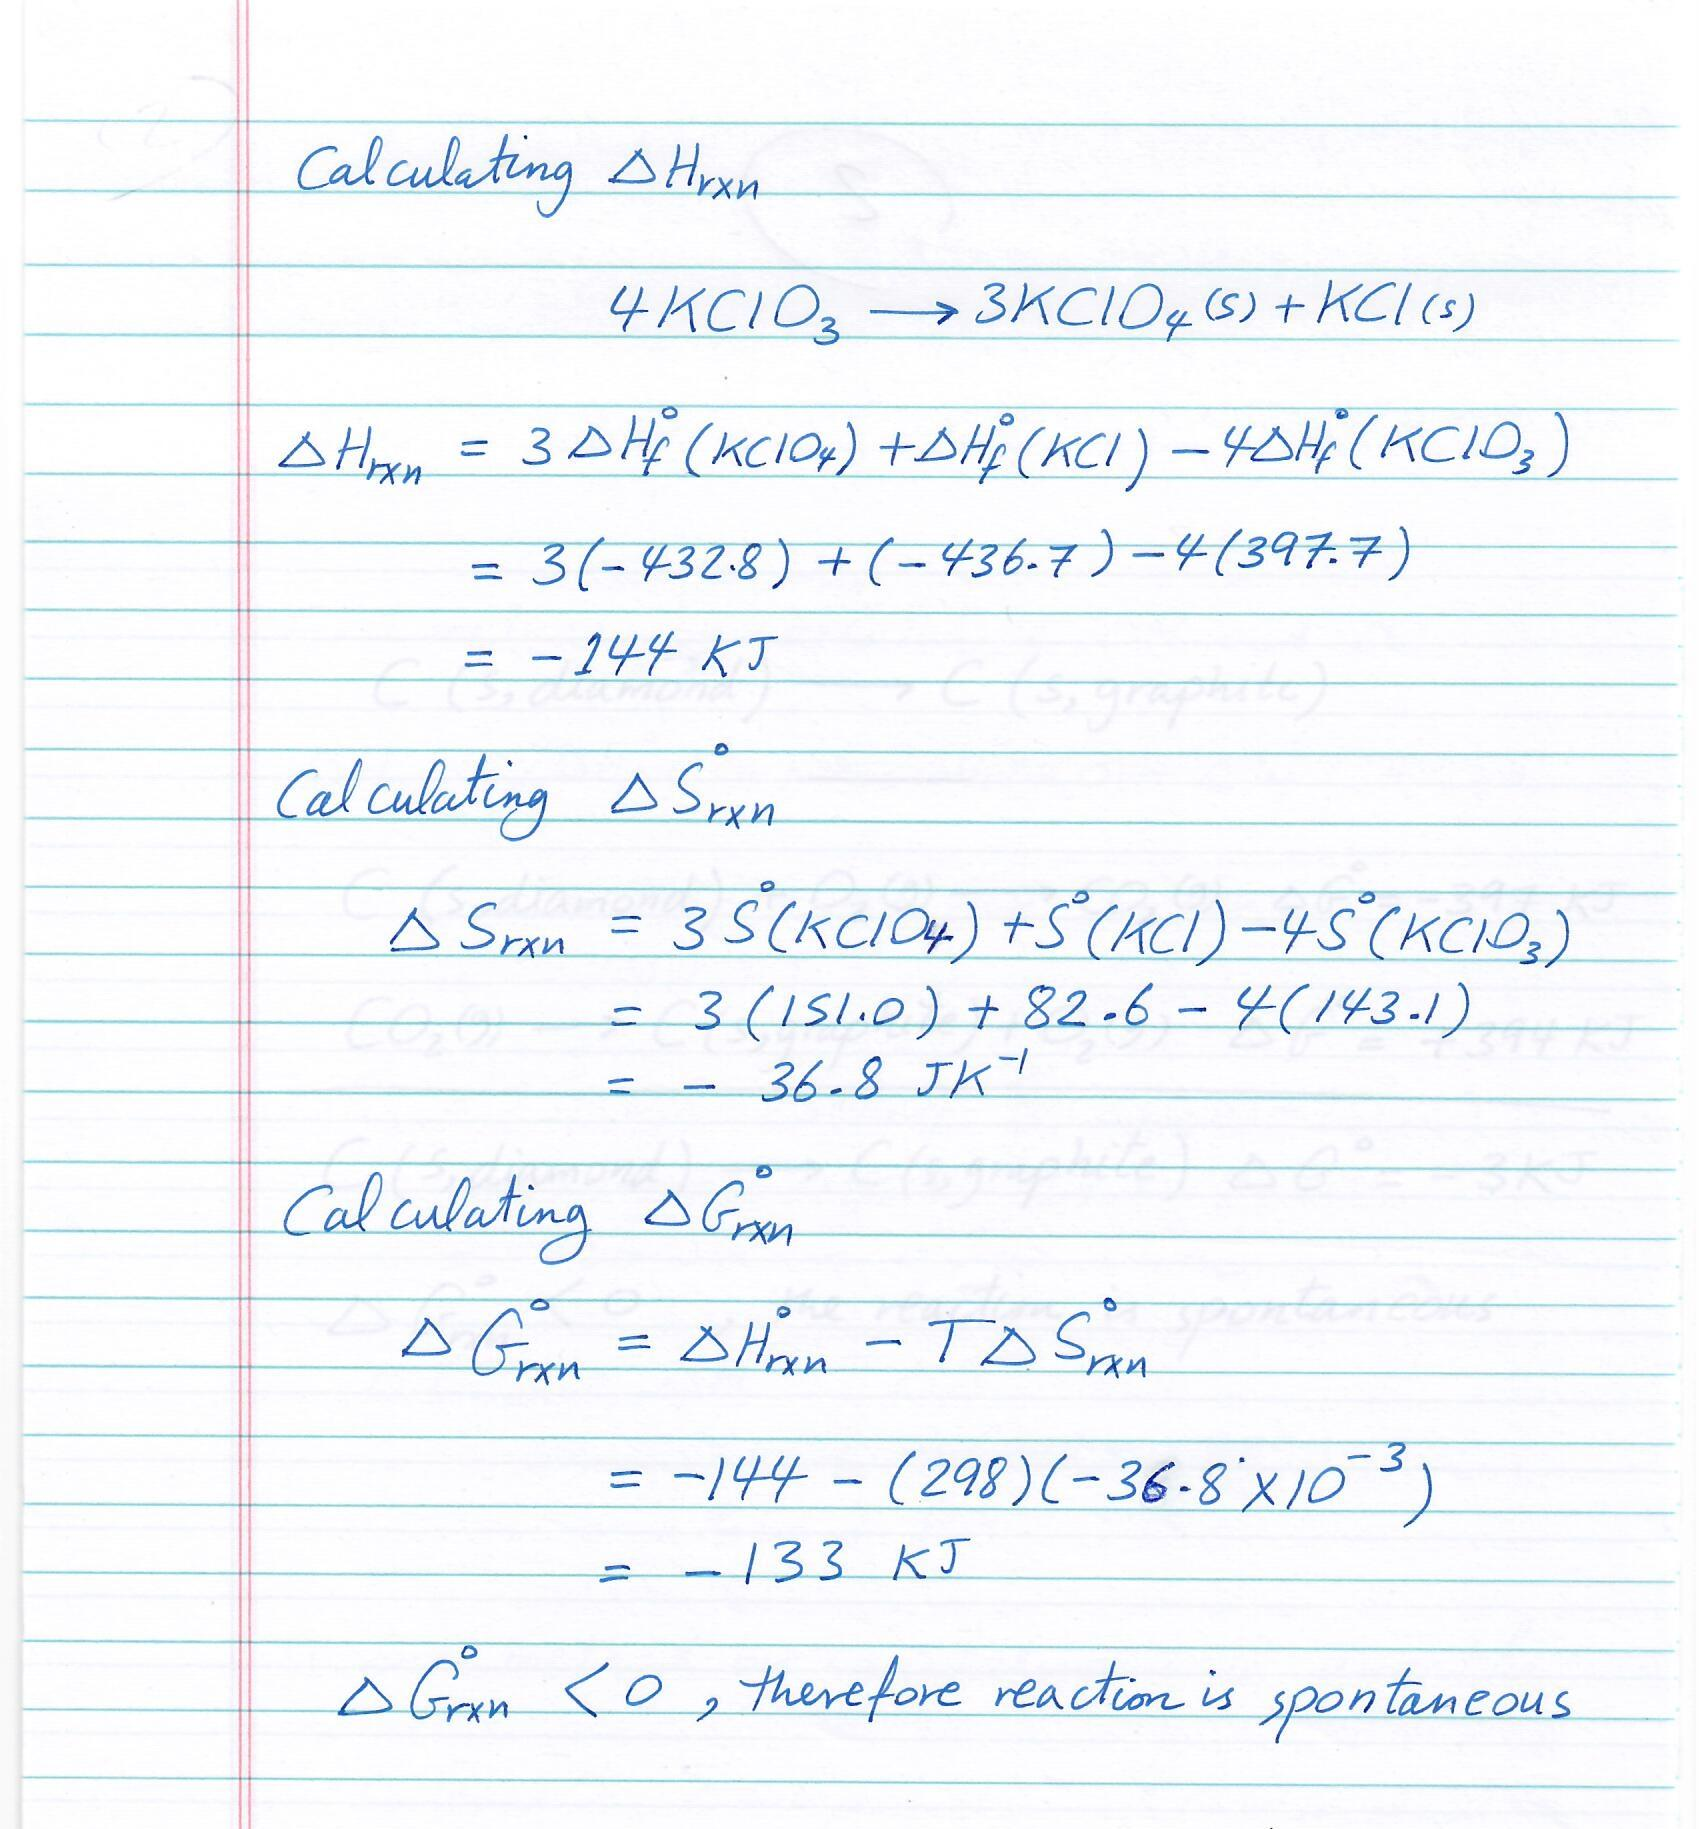 Calculating ΔHrxn
4KClO₃ ⟶ 3KClO₄(s) + KCl(s)
ΔHrxn = 3ΔHf°(KClO₄) + ΔHf°(KCl) − 4ΔHf°(KClO₃)
= 3(−432.8) + (−436.7) − 4(397.7)
= −144 KJ
Calculating ΔS°rxn
ΔSrxn = 3S°(KClO₄) + S°(KCl) − 4S°(KClO₃)
= 3(151.0) + 82.6 − 4(143.1)
= − 36.8 JK⁻¹
Calculating ΔG°rxn
ΔG°rxn = ΔH°rxn − TΔS°rxn
= −144 − (298)(−36.8 × 10⁻³)
= −133 KJ
ΔG°rxn < 0, therefore reaction is spontaneous